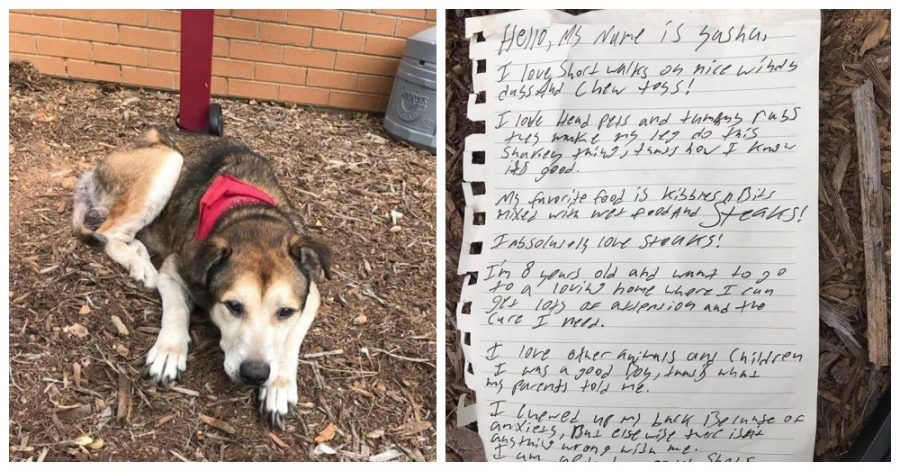 Hello, My Name is Sasha,
I love short walks on nice windy
days And Chew toys!
I love Head pets and tummy rubs
they make my leg do this
shakey thing, thats how I know
its good.
My favorite food is Kibbles n Bits
mixed with wet food And Steaks!
I Absolutely love Steaks!
I'm 8 years old and want to go
to a loving home where I can
get lots of attension and the
Care I need.
I love other animals and Children
I was a good boy, thats what
my parents told me.
I chewed up my back Because of
anxiety, But else wise there isnt
anything wrong with me.
I am